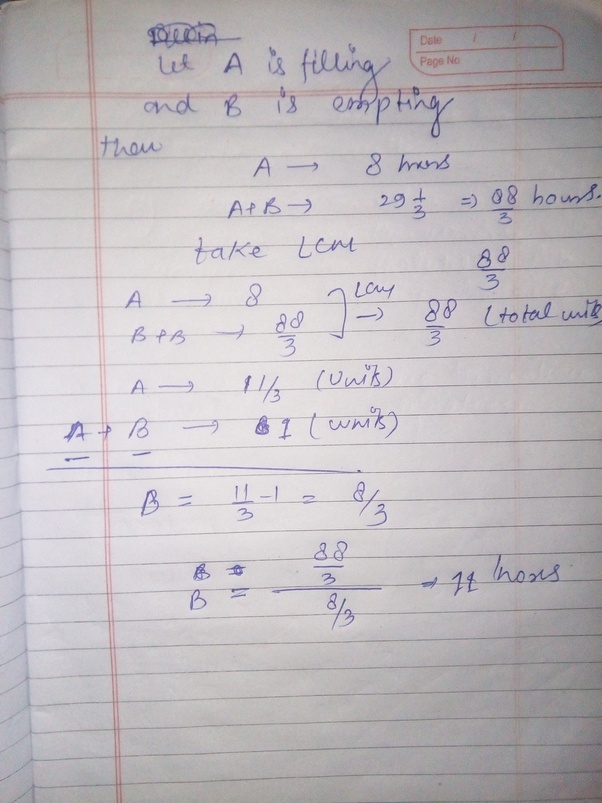 Date / /
Page No
Let A is filling
and B is empting
then
A → 8 hours
A+B → 29 1/3 => 88/3 hours.
take LCM
88/3
A → 8
B+B → 88/3 ] LCM → 88/3 (total units
A → 11/3 (Units)
A + B → 1 (units)
B = 11/3 - 1 = 8/3
B = 88/3 / 8/3 → 11 hours